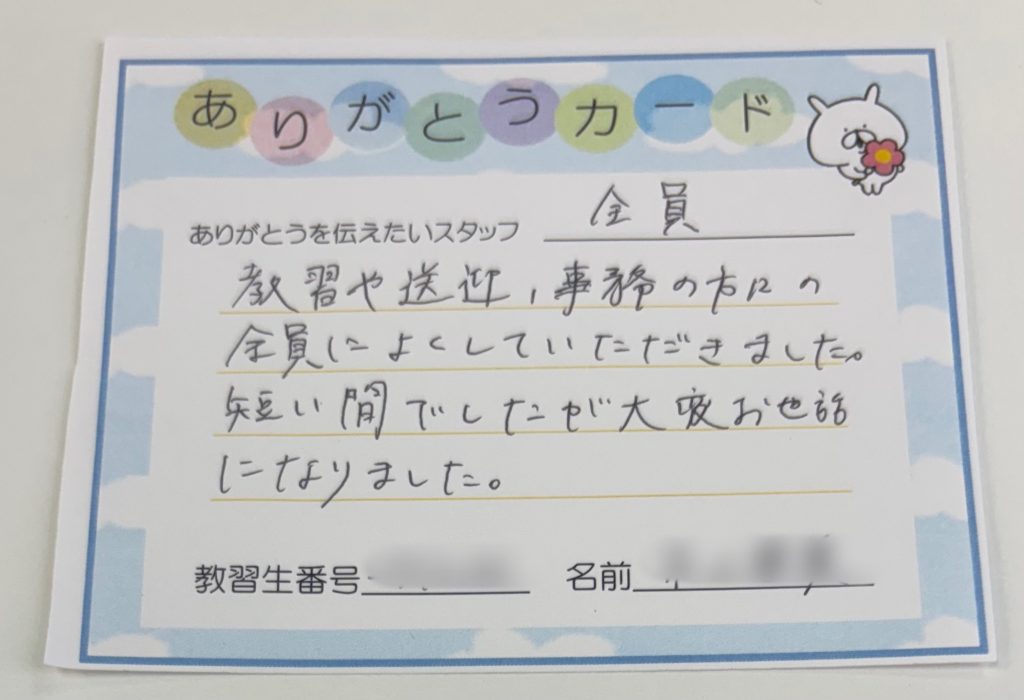 ありがとうカード
ありがとうを伝えたいスタッフ 全員
教習や送迎、事務の方にの
全員によくしていただきました。
短い間でしたが大変お世話
になりました。
教習生番号 名前